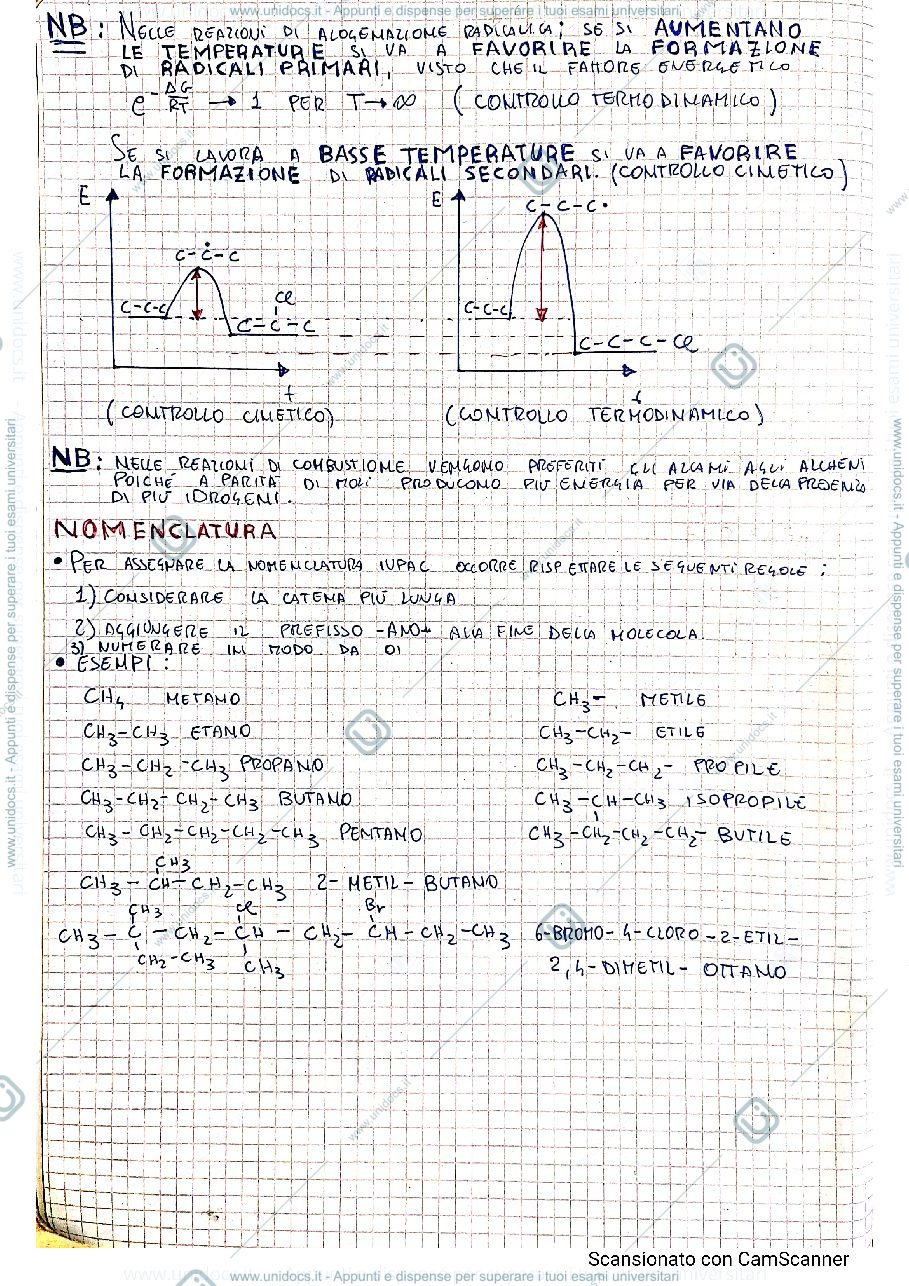 www.unidocs.it - Appunti e dispense per superare i tuoi esami universitari
NB: NELLE REAZIONI DI ALOGENAZIONE RADICALICA; SE SI AUMENTANO
LE TEMPERATURE SI VA A FAVORIRE LA FORMAZIONE
DI RADICALI PRIMARI, VISTO CHE IL FATTORE ENERGETICO
e^-ΔG/RT → 1 PER T→∞ (CONTROLLO TERMODINAMICO)
SE SI LAVORA A BASSE TEMPERATURE SI VA A FAVORIRE
LA FORMAZIONE DI RADICALI SECONDARI. (CONTROLLO CINETICO)
E
C-Ċ-C
C-C-C
Cl
C-C-C
t
(CONTROLLO CINETICO)
E
C-C-C•
C-C-C
C-C-C-Cl
t
(CONTROLLO TERMODINAMICO)
NB: NELLE REAZIONI DI COMBUSTIONE VENGONO PREFERITI GLI ALCANI AGLI ALCHENI
POICHÈ A PARITÀ DI MOLI PRODUCONO PIÙ ENERGIA PER VIA DELLA PRESENZA
DI PIÙ IDROGENI.
NOMENCLATURA
• PER ASSEGNARE LA NOMENCLATURA IUPAC OCCORRE RISPETTARE LE SEGUENTI REGOLE:
1) CONSIDERARE LA CATENA PIÙ LUNGA
2) AGGIUNGERE IL PREFISSO -ANO- ALLA FINE DELLA MOLECOLA.
3) NUMERARE IN MODO DA
• ESEMPI:
CH4 METANO
CH3- METILE
CH3-CH3 ETANO
CH3-CH2- ETILE
CH3-CH2-CH3 PROPANO
CH3-CH2-CH2- PROPILE
CH3-CH2-CH2-CH3 BUTANO
CH3-CH-CH3 ISOPROPILE
CH3-CH2-CH2-CH2-CH3 PENTANO
CH3-CH2-CH2-CH2- BUTILE
CH3
CH3-CH-CH2-CH3 2-METIL-BUTANO
CH3 Cl Br
CH3-C-CH2-CH-CH2-CH-CH2-CH3 6-BROMO-4-CLORO-2-ETIL-
CH2-CH3 CH3 2,4-DIMETIL-OTTANO
Scansionato con CamScanner
www.unidocs.it - Appunti e dispense per superare i tuoi esami universitari